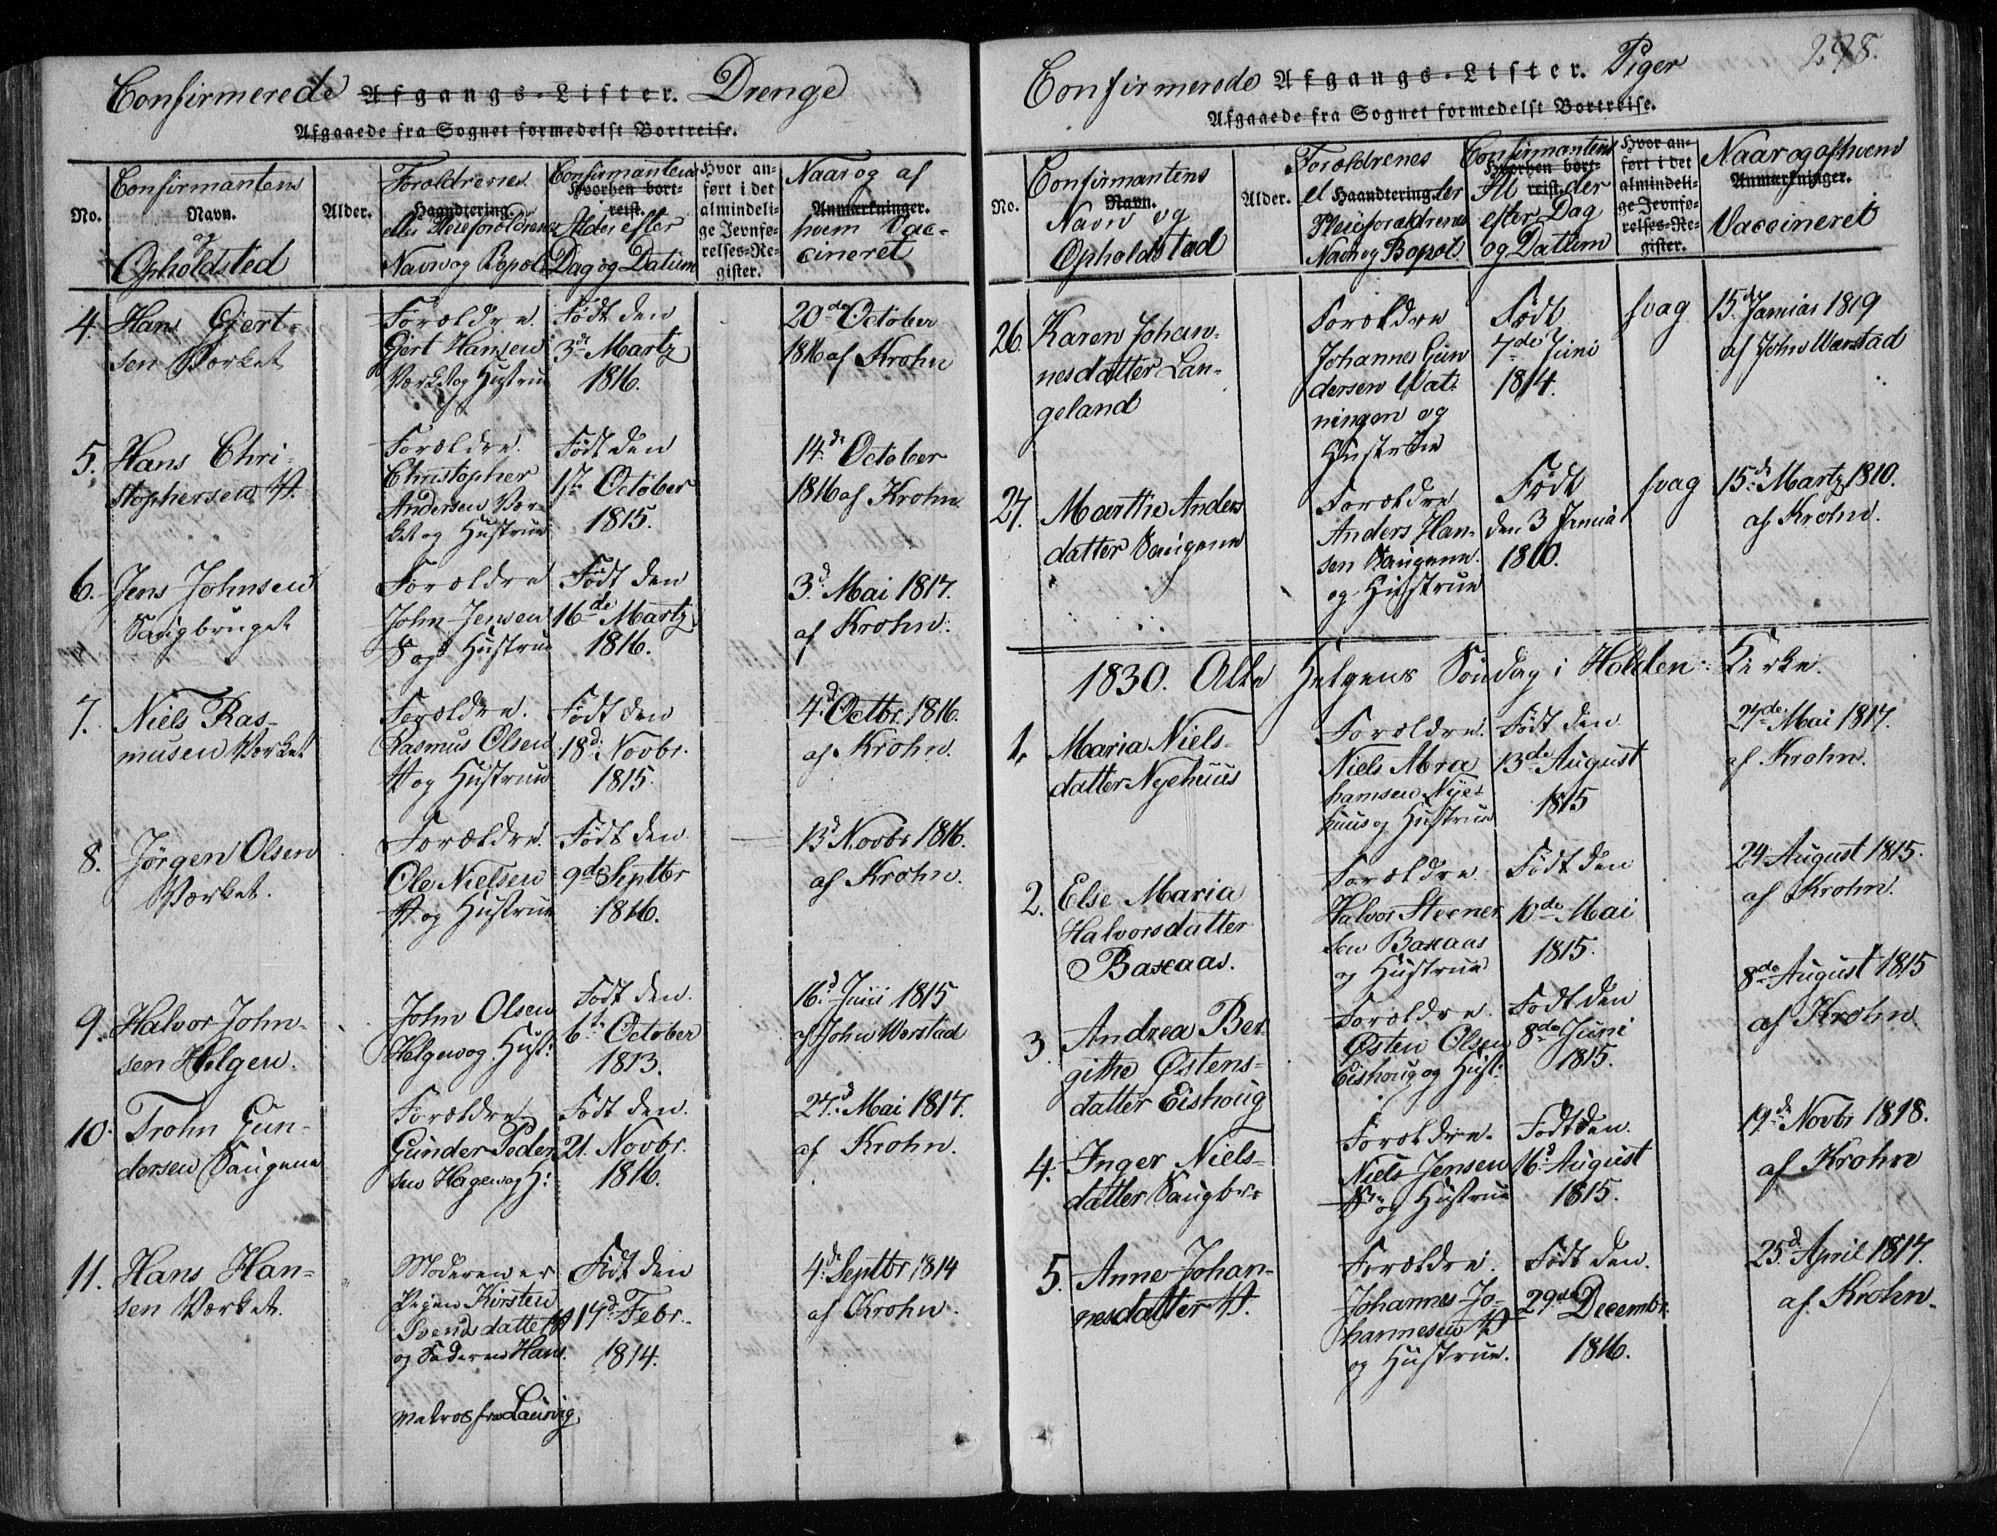 Confirmerede Afgangs-Lister. Drenge
Afgaaede fra Sognet formedelst Bortreise.
No.
Confirmantens
Navn.
og
Opholdsted
Alder.
Forældrenes
Haandtering.
eller Pleieforældrenes
Navn og Bopæl
Confirmantens
Hvorhen bort-
reist.
Alder efter
Dag og Datum
Hvor an-
ført i det
almindeli-
ge Jevnfø-
relses-Re-
gister.
Naar og af
Anmærkninger.
hvem Vac-
cineret
4. Hans Gjert-
sen Værket
Forældre.
Gjert Hansen
Værket og Hustrue
Født den
3de Martz
1816.
20de October
1816 af Krohn
5. Hans Chri-
stophersen V.
Forældre.
Christopher
Andersen Vær-
ket og Hustrue
Født den
17de October
1815.
14de October
1816 af Krohn
6. Jens Johnsen
Saugbruget
Forældre
John Jensen
S og Hustrue
Født den
16de Martz
1816.
3d Mai 1817.
af Krohn.
7. Niels Ras-
musen Værket
Forældre.
Rasmus Olsen
V og Hustrue
Født den
18d Novbr.
1815.
4d Octbr. 1816.
af Krohn.
8. Jørgen Olsen
Værket.
Forældre.
Ole Nielsen
V. og Hustrue
Født den
9de Septbr
1816.
13d Novbr 1816.
af Krohn.
9. Halvor John-
sen Helgen.
John Olsen
Helgen og Hust:
Født den.
6te October
1813.
16d Juni 1815
af John Værstad
10. Trohn Gun-
dersen Saugene
Forældre.
Gunder Peder
sen Hagen og H:
Født den.
21. Novbr.
1816.
27d Mai 1817.
af Krohn.
11. Hans Han-
sen Værket.
Moderen er
Pigen Kirsten
Svendsdatter
og Faderen Hans
Matros fra Laurvig.
Født den
17d Febr.
1814.
4de Septbr 1814
af Krohn.
298.
Confirmerede Afgangs-Lister. Piger
Afgaaede fra Sognet formedelst Bortreise.
No.
Confirmantens
Navn.
Navn og
Opholdstad
Alder.
Forældrenes
el Haandtering. ler
Pleieforældrenes
Navn og Bopæl
Confirmantens
Hvorhen bort-
Al reist. der
efter Dag
og Dattum
Hvor an-
ført i det
almindeli-
ge Jevnfø-
relses-Re-
gister.
Naar og af hvem
Anmærkninger.
Vaccineret
26. Karen Johan-
nesdatter Lan-
geland
Forældre
Johannes Gun
dersen Vat-
ningen og
Hustrue
Født
7de Juni
1814.
svag
15d Januar 1819
af John Værstad
27. Marthe Anders
datter Saugene
Forældre
Anders Han-
sen Saugene.
og Hustrue
Født
den 3 Januar
1810.
svag
15d Martz 1810.
af Krohn.
1830. Alle Helgens Søndag i Holden Kirke.
1. Maria Niels-
datter Nyehuus
Forældre.
Niels Abra
hamsen Nye-
huus og Hustrue
Født den
13de August
1815
27de Mai 1817.
af Krohn.
2. Else Maria
Halvorsdatter
Baxaas.
Forældre
Halvor Steener
sen Baxaas
og Hustrue
Født den
10de Mai
1815.
24 August 1815.
af Krohn.
3. Andrea Ber
githe Østens-
datter Eishoug
Forældre.
Østen Olsen
Eishoug og Hust:
Født den
8de Juni
1815.
8de August 1815
af Krohn
4. Inger Niels-
datter Saugbr.
Forældre.
Niels Jensen
S. og Hustrue
Født den.
16d August
1815.
19de Novbr 1818.
af Krohn
5. Anne Johan-
nesdatter V.
Forældre.
Johannes Jo-
hannesen V
og Hustrue.
Født den.
29de Decembr.
1816.
25d April 1817.
af Krohn.